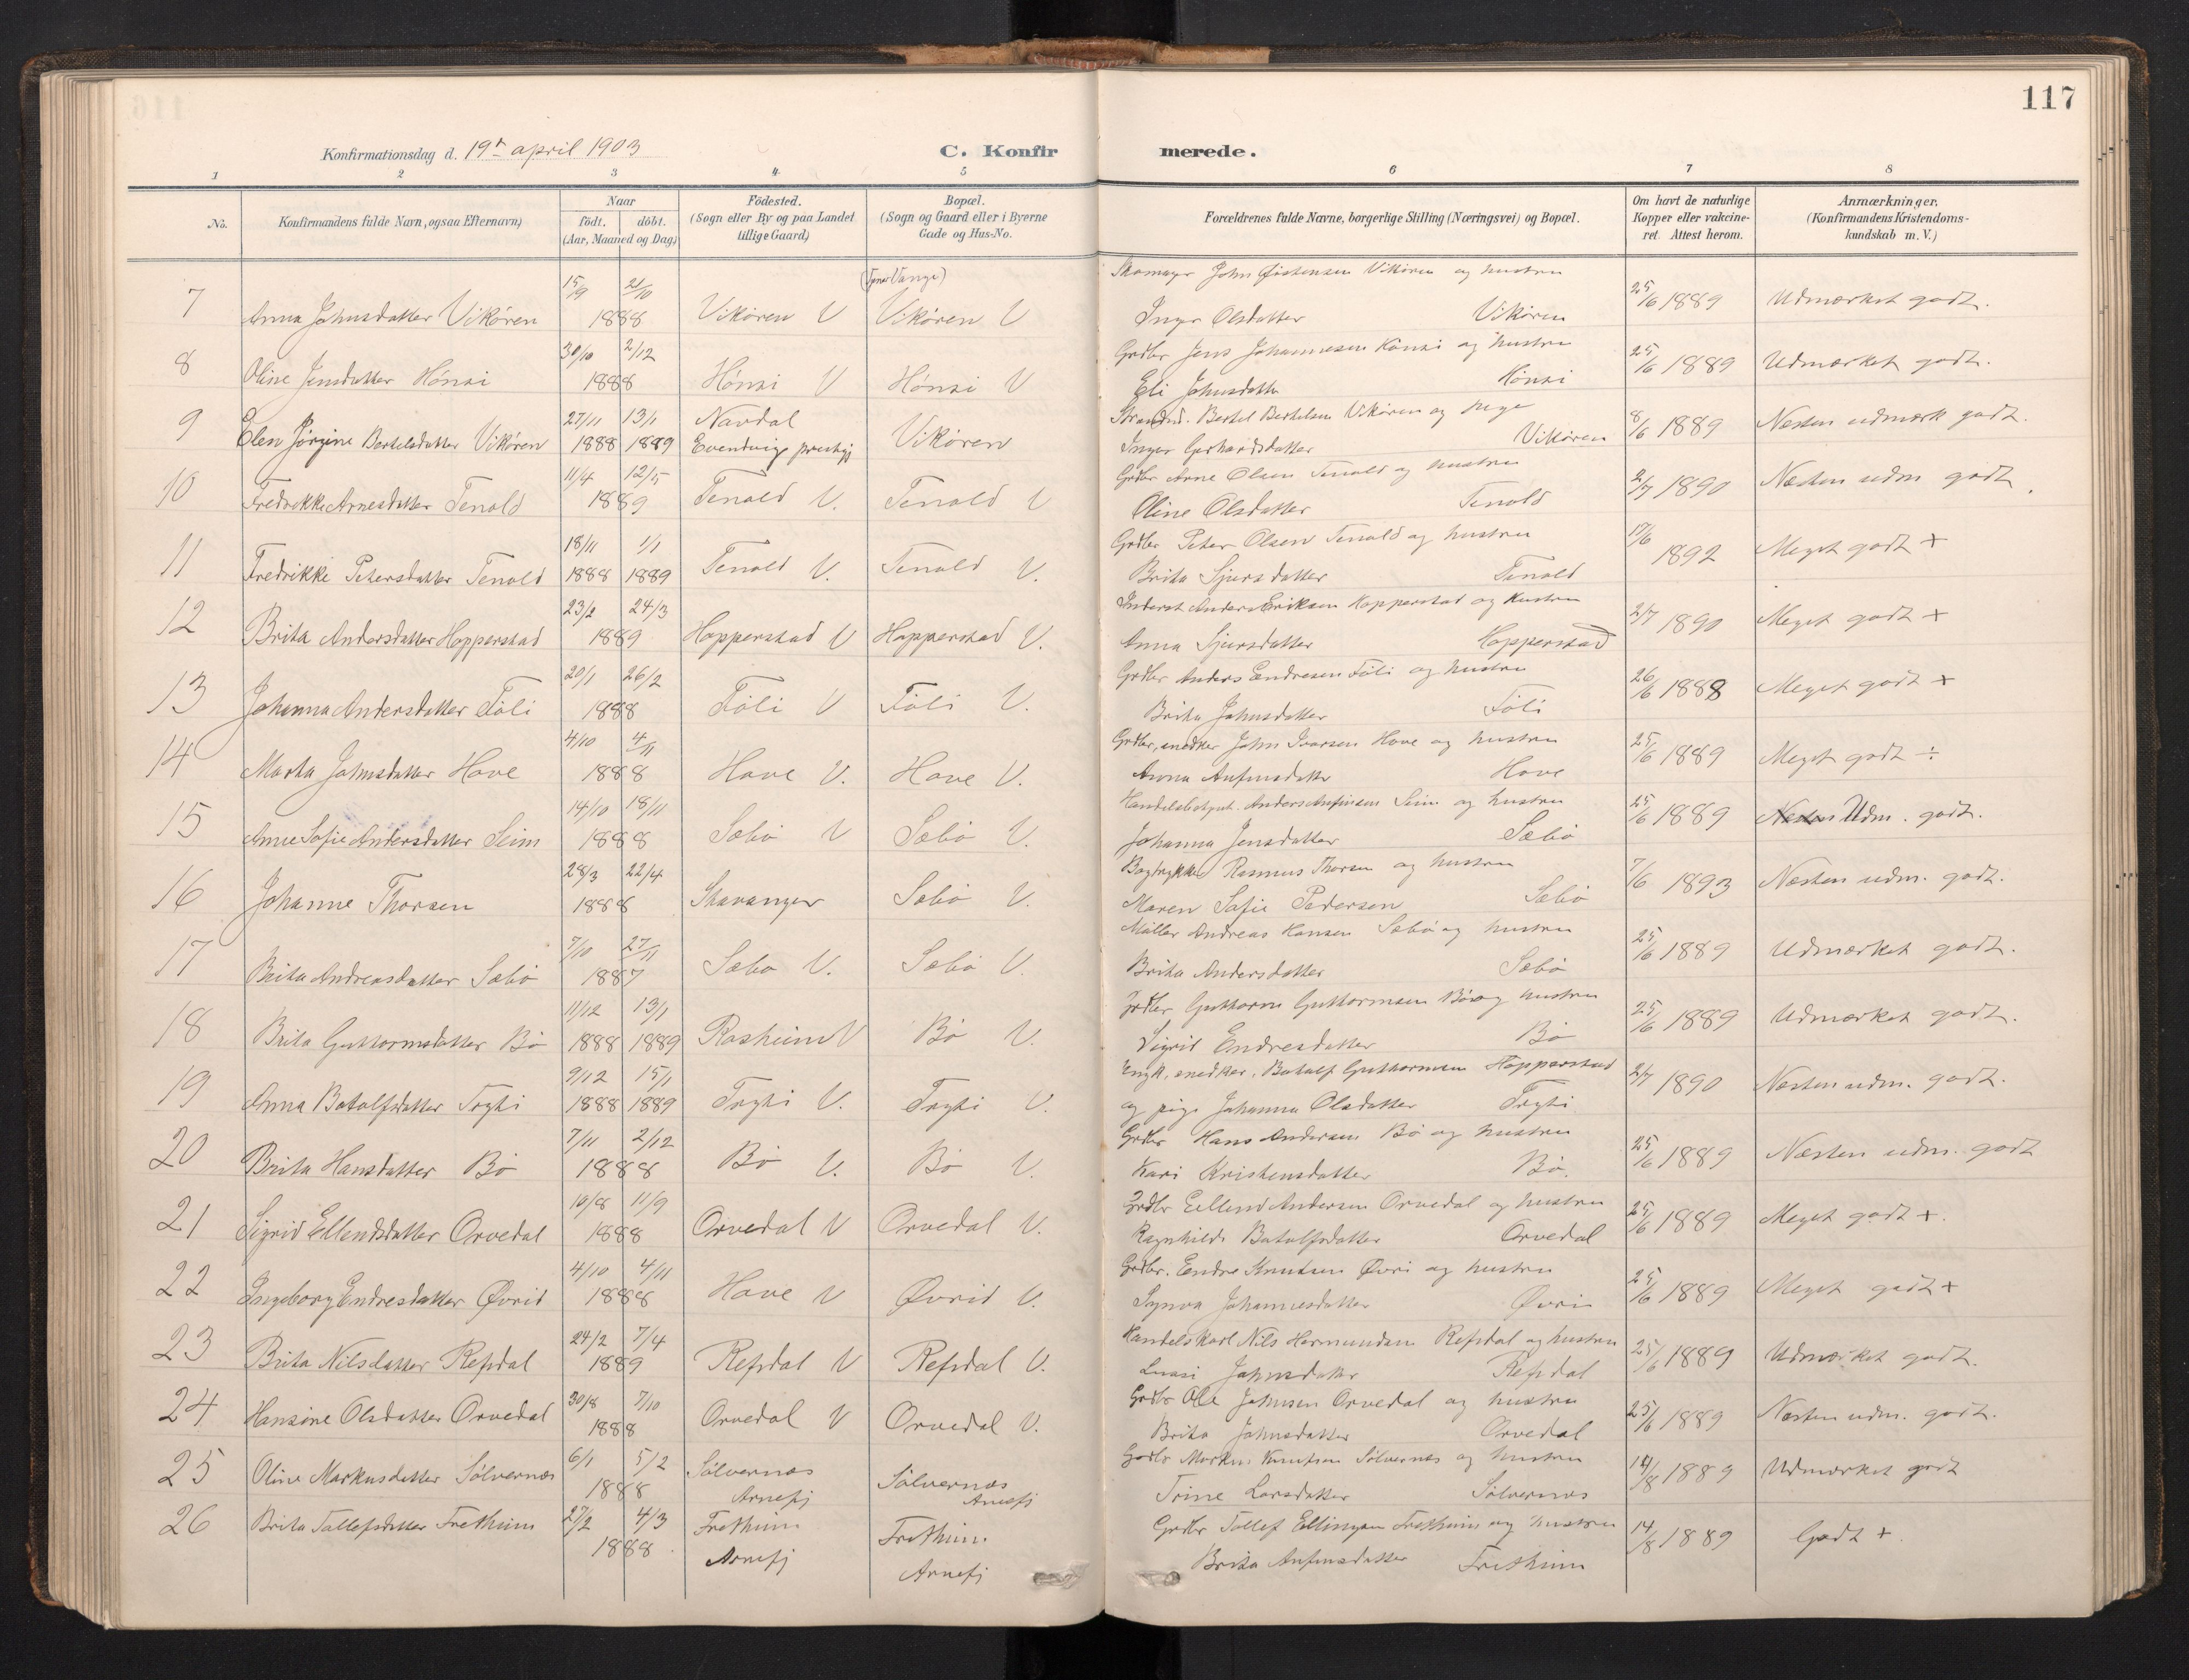 117
Konfirmationsdag d. 19de april 1903
C. Konfirmerede.
1 2 3 4 5 6 7 8
No.
Konfirmandens fulde Navn, ogsaa Efternavn)
Naar födt. döbt. (Aar, Maaned og Dag)
Födested. (Sogn eller By og paa Landet tillige Gaard)
Bopæl. (Sogn og Gaard eller i Byerne Gade og Hus-No.
Forældrenes fulde Navne, borgerlige Stilling (Næringsvei) og Bopæl.
Om havt de naturlige Kopper eller vakcineret. Attest herom.
Anmærkninger. (Konfirmandens Kristendomskundskab m. V.)
7 Anna Johnsdatter Vikören 15/9 21/10 1888 Vikören V Vikören V
Skomager John Östensen Vikören og hustru
Inger Olsdatter Vikören 25/6 1889 Udmærket godt.
8 Oline Jensdatter Hönsi 30/10 2/12 1888 Hönsi V Hönsi V
Grdbr Jens Johannesen Hönsi og hustru
Eli Johnsdatter Hönsi 25/6 1889 Udmærket godt.
9 Elen Jörgine Bertelsdatter Vikören 27/11 1888 13/1 1889 Navdal Evendvig prestgj Vikören
Strandsid. Bertel Bertelsen Vikören og pige
Inger Gerhardsdatter Vikören 8/6 1889 Næsten udmærk godt.
10 Fredrikke Arnesdatter Tenold 11/4 12/5 1889 Tenold V. Tenold V
Grdbr Arne Olsen Tenold og hustru
Oline Olsdatter Tenold 2/7 1890 Næsten udm godt.
11 Fredrikke Petersdatter Tenold 18/11 1888 1/1 1889 Tenold V. Tenold V.
Grdbr Peter Olsen Tenold og hustru
Brita Sjursdatter Tenold 17/6 1892 Meget godt +
12 Brita Andersdatter Hopperstad 23/2 24/3 1889 Hopperstad V Hopperstad V.
Inderst Anders Eriksen Hopperstad og hustru
Anna Sjursdatter Hopperstad 2/7 1890 Meget godt +
13 Johanna Andersdatter Föli 20/1 26/2 1888 Föli V Föli V.
Grdbr Anders Endresen Föli og hustru
Brita Johnsdatter Föli 26/6 1888 Meget godt +
14 Marta Johnsdatter Hove 4/10 4/11 1888 Hove V. Hove V.
Grdbr, snedker John Ivarsen Hove og hustru
Anna Anfinsdatter Hove 25/6 1889 Meget godt ÷
15 Anne Sofie Andersdatter Seim 14/10 18/11 1888 Sæbö V Sæbö V.
Anders Anfinsen Seim og hustru
Johanna Jensdatter Sæbö 25/6 1889 Næsten Udm. godt.
16 Johanne Thorsen 28/3 22/4 1888 Stavanger Sæbö V.
Bogtrykker Rasmus Thorsen og hustru
Maren Sofie Pedersen Sæbö 7/6 1893 Næsten udm. godt.
17 Brita Andreasdatter Sæbö 7/10 27/11 1887 Sæbö V. Sæbö V.
Möller Andreas Hansen Sæbö og hustru
Brita Andersdatter Sæbö 25/6 1889 Udmærket godt.
18 Brita Guttormsdatter Bö 11/12 1888 13/1 1889 Rasheim V Bö V.
Grdbr Guttorm Guttormsen Bö og hustru
Sigrid Endresdatter Bö 25/6 1889 Udmærket godt.
19 Anna Botolfsdatter Tryti 9/12 1888 15/1 1889 Tryti V. Tryti V.
Ungk. snedker. Botolf Guttormsen Hopperstad
og pige Johanna Olsdatter Tryti 2/7 1890 Næsten udm. godt.
20 Brita Hansdatter Bö 7/11 2/12 1888 Bö V. Bö V.
Grdbr Hans Andersen Bö og hustru
Kari Kristensdatter Bö. 25/6 1889 Næsten udm. godt
21 Sigrid Ellendsdatter Orvedal 10/8 11/9 1888 Orvedal V Orvedal V.
Grdbr Ellend Andersen Orvedal og hustru
Ragnhilde Botolfsdatter Orvedal 25/6 1889 Meget godt +.
22 Ingeborg Endresdatter Øvrid 4/10 4/11 1888 Hove V Øvrid V.
Grdbr. Endre Knutsen Øvri og hustru
Synva Johannesdatter Øvri 25/6 1889 Meget godt +
23 Brita Nilsdatter Refsdal 24/2 7/4 1889 Refsdal V Refsdal V.
Handelskarl Nils Hermundsen Refsdal og hustru
Johnsdatter Refsdal 25/6 1889 Udmærket godt.
24 Hansine Olsdatter Orvedal 30/8 7/10 1888 Orvedal V Orvedal V.
Grdbr Ole Johnsen Orvedal og hustru
Brita Johnsdatter Orvedal 25/6 1889 Næsten udm. godt.
25 Oline Markusdatter Sölvernæs 6/1 5/2 1888 Sölvernæs Arnefj Sölvernæs Arnefj
Grdbr Markus Knutsen Sölvernæs og hustru
Trine Larsdatter Sölvernæs 14/8 1889 Udmærket godt
26 Brita Tollefsdatter Fretheim 27/2 4/3 1888. Fretheim Arnefj Fretheim Arnefj
Grdbr Tollef Ellingsen Fretheim og hustru
Brita Anfinsdatter Fretheim 14/8 1889 Godt +.